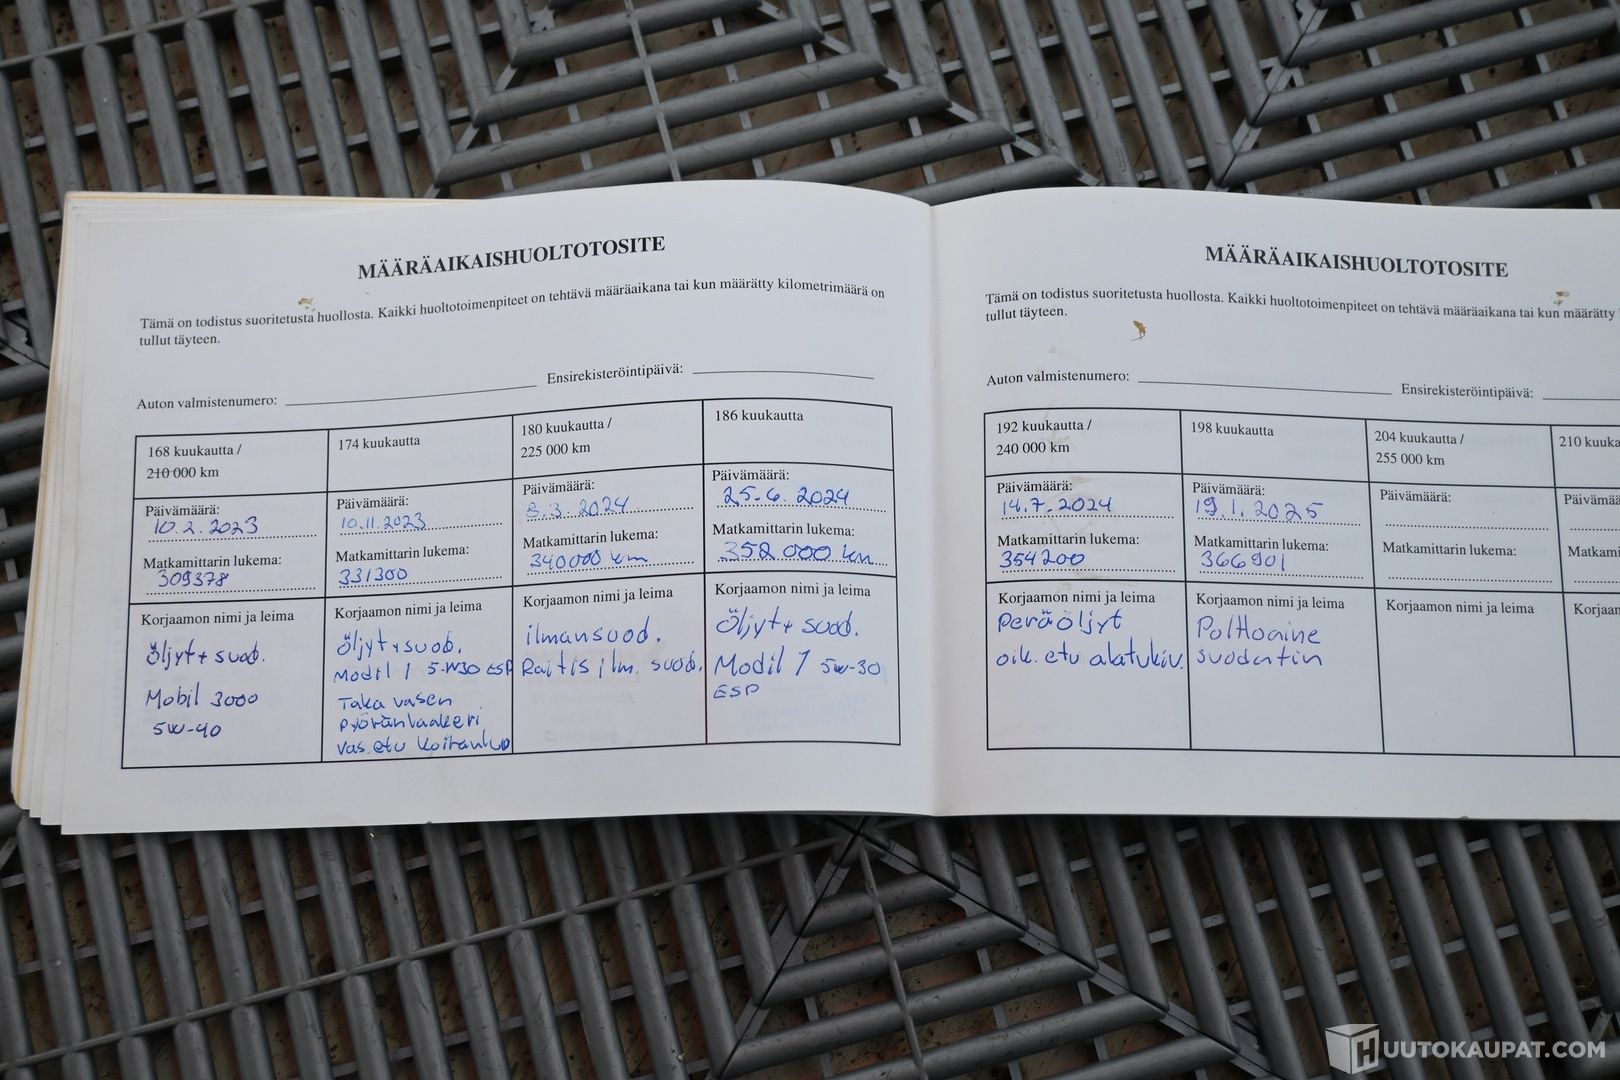 MÄÄRÄAIKAISHUOLTOTOSITE
Tämä on todistus suoritetusta huollosta. Kaikki huoltotoimenpiteet on tehtävä määräaikana tai kun määrätty kilometrimäärä on
tullut täyteen.
Auton valmistenumero:
Ensirekisteröintipäivä:
168 kuukautta /
210 000 km
Päivämäärä:
10.2.2023
Matkamittarin lukema:
309378
Korjaamon nimi ja leima
Öljyt + suod.
Mobil 3000
5W-40
174 kuukautta
Päivämäärä:
10.11.2023
Matkamittarin lukema:
331300
Korjaamon nimi ja leima
Öljyt + suod.
Mobil 1 5-W30 ESP
Taka vasen
pyöränlaakeri
vas. etu
180 kuukautta /
225 000 km
Päivämäärä:
8.3.2024
Matkamittarin lukema:
340000 km
Korjaamon nimi ja leima
ilmansuod.
Raitis ilm. suod.
186 kuukautta
Päivämäärä:
25.6.2024
Matkamittarin lukema:
352.000 km
Korjaamon nimi ja leima
Öljyt + suod.
Mobil 1 5W-30
ESP
MÄÄRÄAIKAISHUOLTOTOSITE
Tämä on todistus suoritetusta huollosta. Kaikki huoltotoimenpiteet on tehtävä määräaikana tai kun määrätty
tullut täyteen.
Auton valmistenumero:
Ensirekisteröintipäivä:
192 kuukautta /
240 000 km
Päivämäärä:
14.7.2024
Matkamittarin lukema:
354200
Korjaamon nimi ja leima
Peräöljyt
oik. etu alatukiv.
198 kuukautta
Päivämäärä:
19.1.2025
Matkamittarin lukema:
366901
Korjaamon nimi ja leima
Polttoaine
suodatin
204 kuukautta /
255 000 km
Päivämäärä:
Matkamittarin lukema:
Korjaamon nimi ja leima
210 kuuka
Päivämää
Matkami
Korjaam
HUUTOKAUPAT.COM